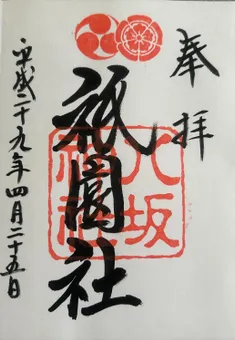 奉拝
八坂神社
祇園社
平成二十九年四月二十五日